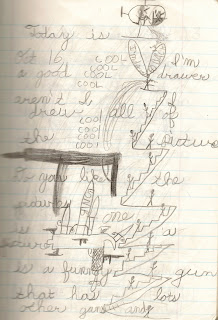 Today is
COOL
It is COOL I'm
a good COOL drawer
COOL
aren't I
drew all of
COOL
the COOL picture
COOL
you like the
one
is a
is a funny gun
that has lots
other guns and